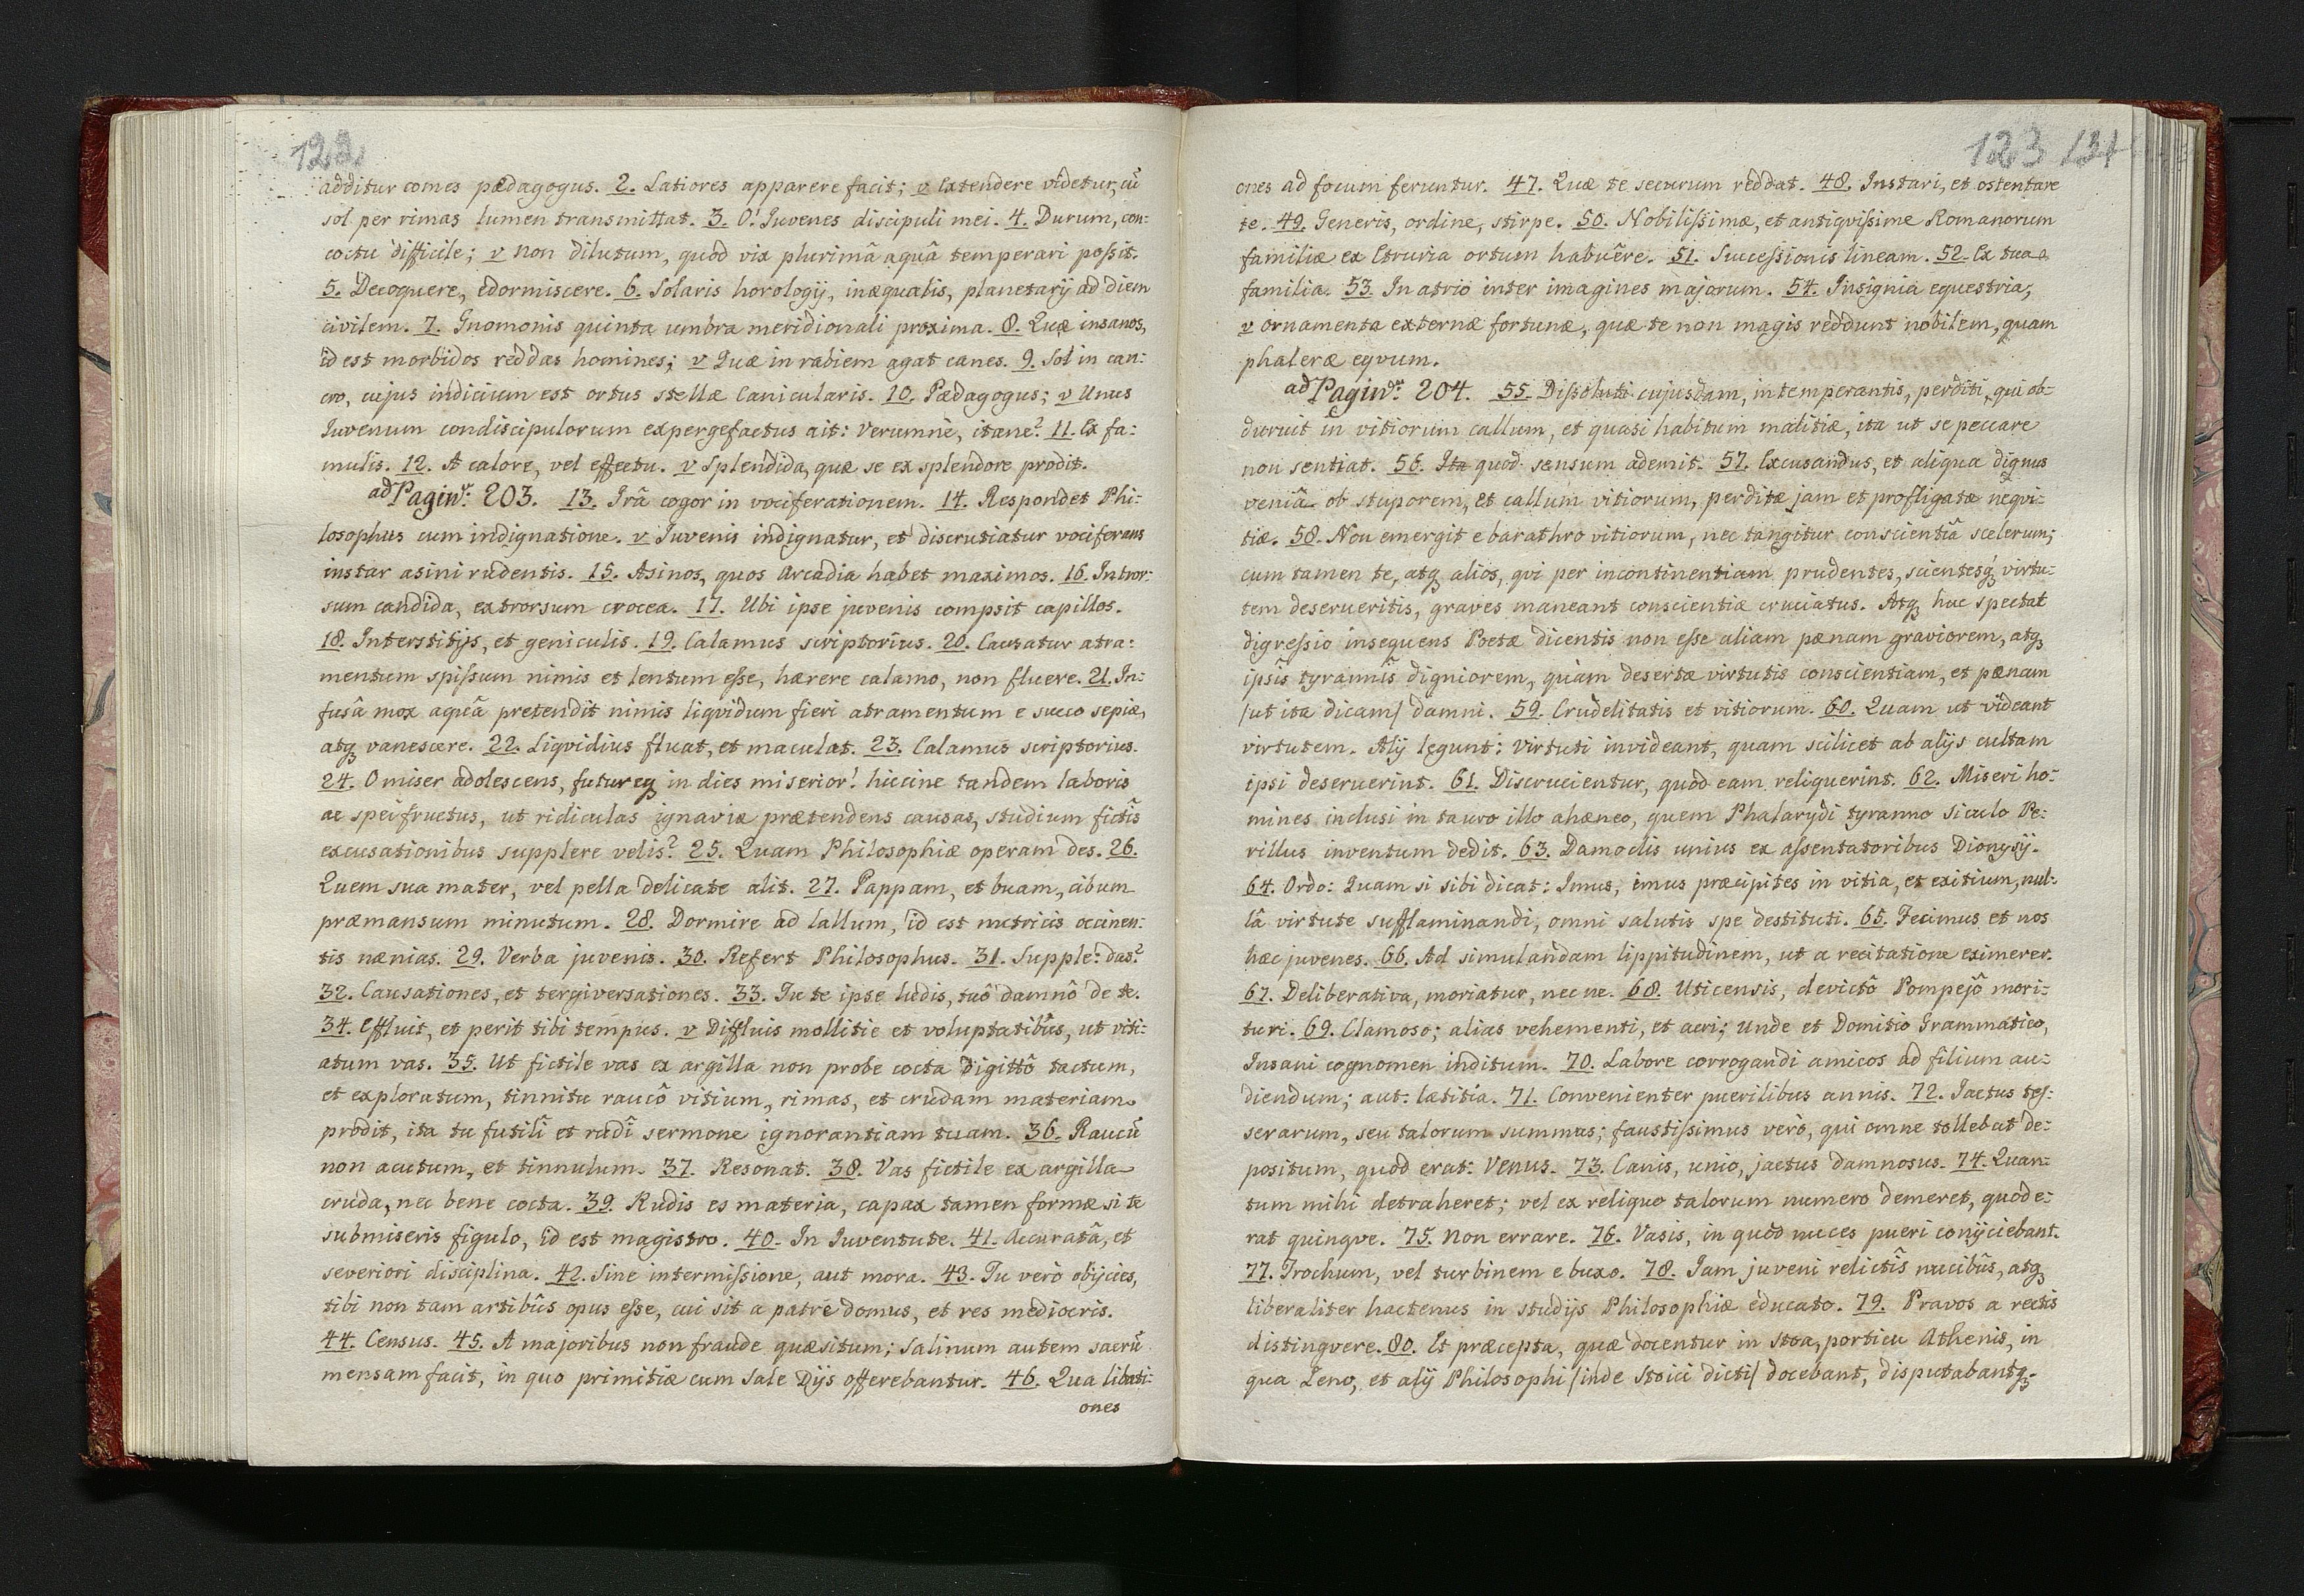 122
additur comes pædagogus. 2. Latiores apparere facit; v extendere videtur, cū
sol per rimas lumen transmittat. 3. O! Iuvenes discipuli mei. 4. Durum, con:
coctu difficile; v non dilutum, quòd vix plurimâ aquâ temperari possit.
5. Decoquere, edormiscere. 6. Solaris horologij, inæqualis, planetarij ad diem
civilem. 7. Gnomonis quinta umbra meridionali proxima. 8. Quæ insanos,
id est morbidos reddas homines; v Quæ in rabiem agat canes. 9. Sol in can:
cro, cujus indicium est ortus stellæ Canicularis. 10. Pædagogus; v Unus
Iuvenum condiscipulorum expergefactus ait: Verumnè, itane? 11. Ex fa:
mulis. 12. A calore, vel effectu. v Splendida, quæ se ex splendore prodit.
ad Pagin: 203. 13. Irâ cogor in vociferationem. 14. Respondet Phi:
losophus cum indignatione. v Iuvenis indignatur, et discrutiatur vociferans
instar asini rudentis. 15. Asinos, quos Arcadia habet maximos. 16. Intror:
sum candida, extrorsum crocea. 17. Ubi ipse juvenis compsit capillos.
18. Interstitijs, et geniculis. 19. Calamus scriptorius. 20. Causatur atra:
mentum spissum nimis et lentum esse, hærere calamo, non fluere. 21. In:
fusâ mox aquâ pretendit nimis liqvidum fieri atramentum e succo sepiæ,
atq vanescere. 22. Liqvidius fluat, et maculat. 23. Calamus scriptorius.
24. O miser adolescens, futureq in dies miserior! hiccine tandem laboris
ac spei fructus, ut ridiculas ignaviæ prætendens causas, studium fictis
excusationibus supplere velis? 25. Quam Philosophiæ operam des. 26.
Quem sua mater, vel pella delicate alit. 27. Pappam, et buam, cibum
præmansum minutum. 28. Dormire ad lallum, id est nutricis occinen:
tis nænias. 29. Verba juvenis. 30. Refert Philosophus. 31. Supple: das?
32. Causationes, et tergiversationes. 33. Tu te ipse ludis, tuô damnô de te.
34. Effluit, et perit tibi tempus. v Diffluis mollitie et voluptatibûs, ut viti:
atum vas. 35. Ut fictile vas ex argilla non probe cocta digittô tactum,
et exploratum, tinnitu raucô vitium, rimas, et crudam materiam
prodit, ita tu futilî et rudî sermone ignorantiam tuam. 36. Raucū
non acutum, et tinnulum. 37. Resonat. 38. Vas fictile ex argilla
cruda, nec bene cocta. 39. Rudis es materia, capax tamen formæ si te
submiseris figulo, id est magistro. 40. In Iuventute. 41. Accuratâ, et
severiori disciplina. 42. Sine intermissione, aut mora. 43. Tu verò obijcies,
tibi non tam artibûs opus esse, cui sit a patre domus, et res mediocris.
44. Census. 45. A majoribus non fraude quæsitum; Salinum autem sacrū
mensam facit, in quo primitiæ cum Sale Dijs offerebantur. 46. Qua libati:
ones
123 131
ones ad focum feruntur. 47. Quæ te securum reddat. 48. Instari, et ostentare
te. 49. Generis, ordine, stirpe. 50. Nobilissimæ, et antiqvissime Romanorum
familiæ ex Etruria ortum habuêre. 51. Successionis lineam. 52. Ex tua
familia. 53. In atrio inter imagines majorum. 54. Insignia equestria;
v ornamenta externæ fortunæ, quæ te non magis reddunt nobilem, quam
phaleræ eqvum.
ad Pagin: 204. 55. Dissoluti cujusdam, intemperantis, perditi, qui ob:
duruit in vitiorum callum, et quasi habitum malitiæ, ita ut se peccare
non sentiat. 56. Ita quod sensum ademit. 57. Excusandus, et aliqua dignus
veniâ ob stuporem, et callum vitiorum, perditæ jam et profligatæ neqvi:
tiæ. 58. Non emergit e barathro vitiorum, nec tangitur conscientiâ scelerum;
cum tamen te, atq alios, qvi per incontinentiam prudentes, scientesq virtu:
tem deserueritis, graves maneant conscientiæ cruciatus. Atq huc spectat
digressio insequens Poetæ dicentis non esse aliam pænam graviorem, atq
ipsîs tyrannîs digniorem, quàm desertæ virtutis conscientiam, et pænam
/ut ita dicam/ damni. 59. Crudelitatis et vitiorum. 60. Quam ut videant
virtutem. Alij legunt: Virtuti invideant, quam scilicet ab alijs cultam
ipsi deseruerint. 61. Discrucientur, quòd eam reliquerint. 62. Miseri ho:
mines inclusi in tauro illo ahæneo, quem Phalarydi tyranno Siculo Pe:
rillus inventum dedit. 63. Damoclis unius ex assentatoribus Dionysij.
64. Ordo: Quam si sibi dicat: Imus, imus præcipites in vitia, et exitium, nul:
lâ virtute sufflaminandi, omni salutis spe destituti. 65. Fecimus et nos
hæc juvenes. 66. Ad simulandam lippitudinem, ut a recitatione eximerer.
67. Deliberativa, moriatur, nec ne. 68. Uticensis, devictô Pompejô mori:
turi. 69. Clamoso; alias vehementi, et acri; Unde et Domitio Grammatico,
Insani cognomen inditum. 70. Labore corrogandi amicos ad filium au:
diendum; aut: lætitia. 71. Convenienter puerilibus annis. 72. Jactus tes:
serarum, seu talorum summus; faustissimus verò, qui omne tollebat de:
positum, quod erat: Venus. 73. Canis, unio, jactus damnosus. 74. Quan:
tum mihi detraheret; vel ex reliquo talorum numero demeret, quod e:
rat quinqve. 75. Non errare. 76. Vasis, in quod nuces pueri conijciebant.
77. Trochum, vel turbinem e buxo. 78. Iam juveni relictîs nucibûs, atq
liberaliter hactenus in studijs Philosophiæ educato. 79. Pravos a rectis
distingvere. 80. Et præcepta, quæ docentur in Stoa, porticu Athenis, in
qua Zeno, et alij Philosophi /inde Stoici dicti/ docebant, disputabantq;